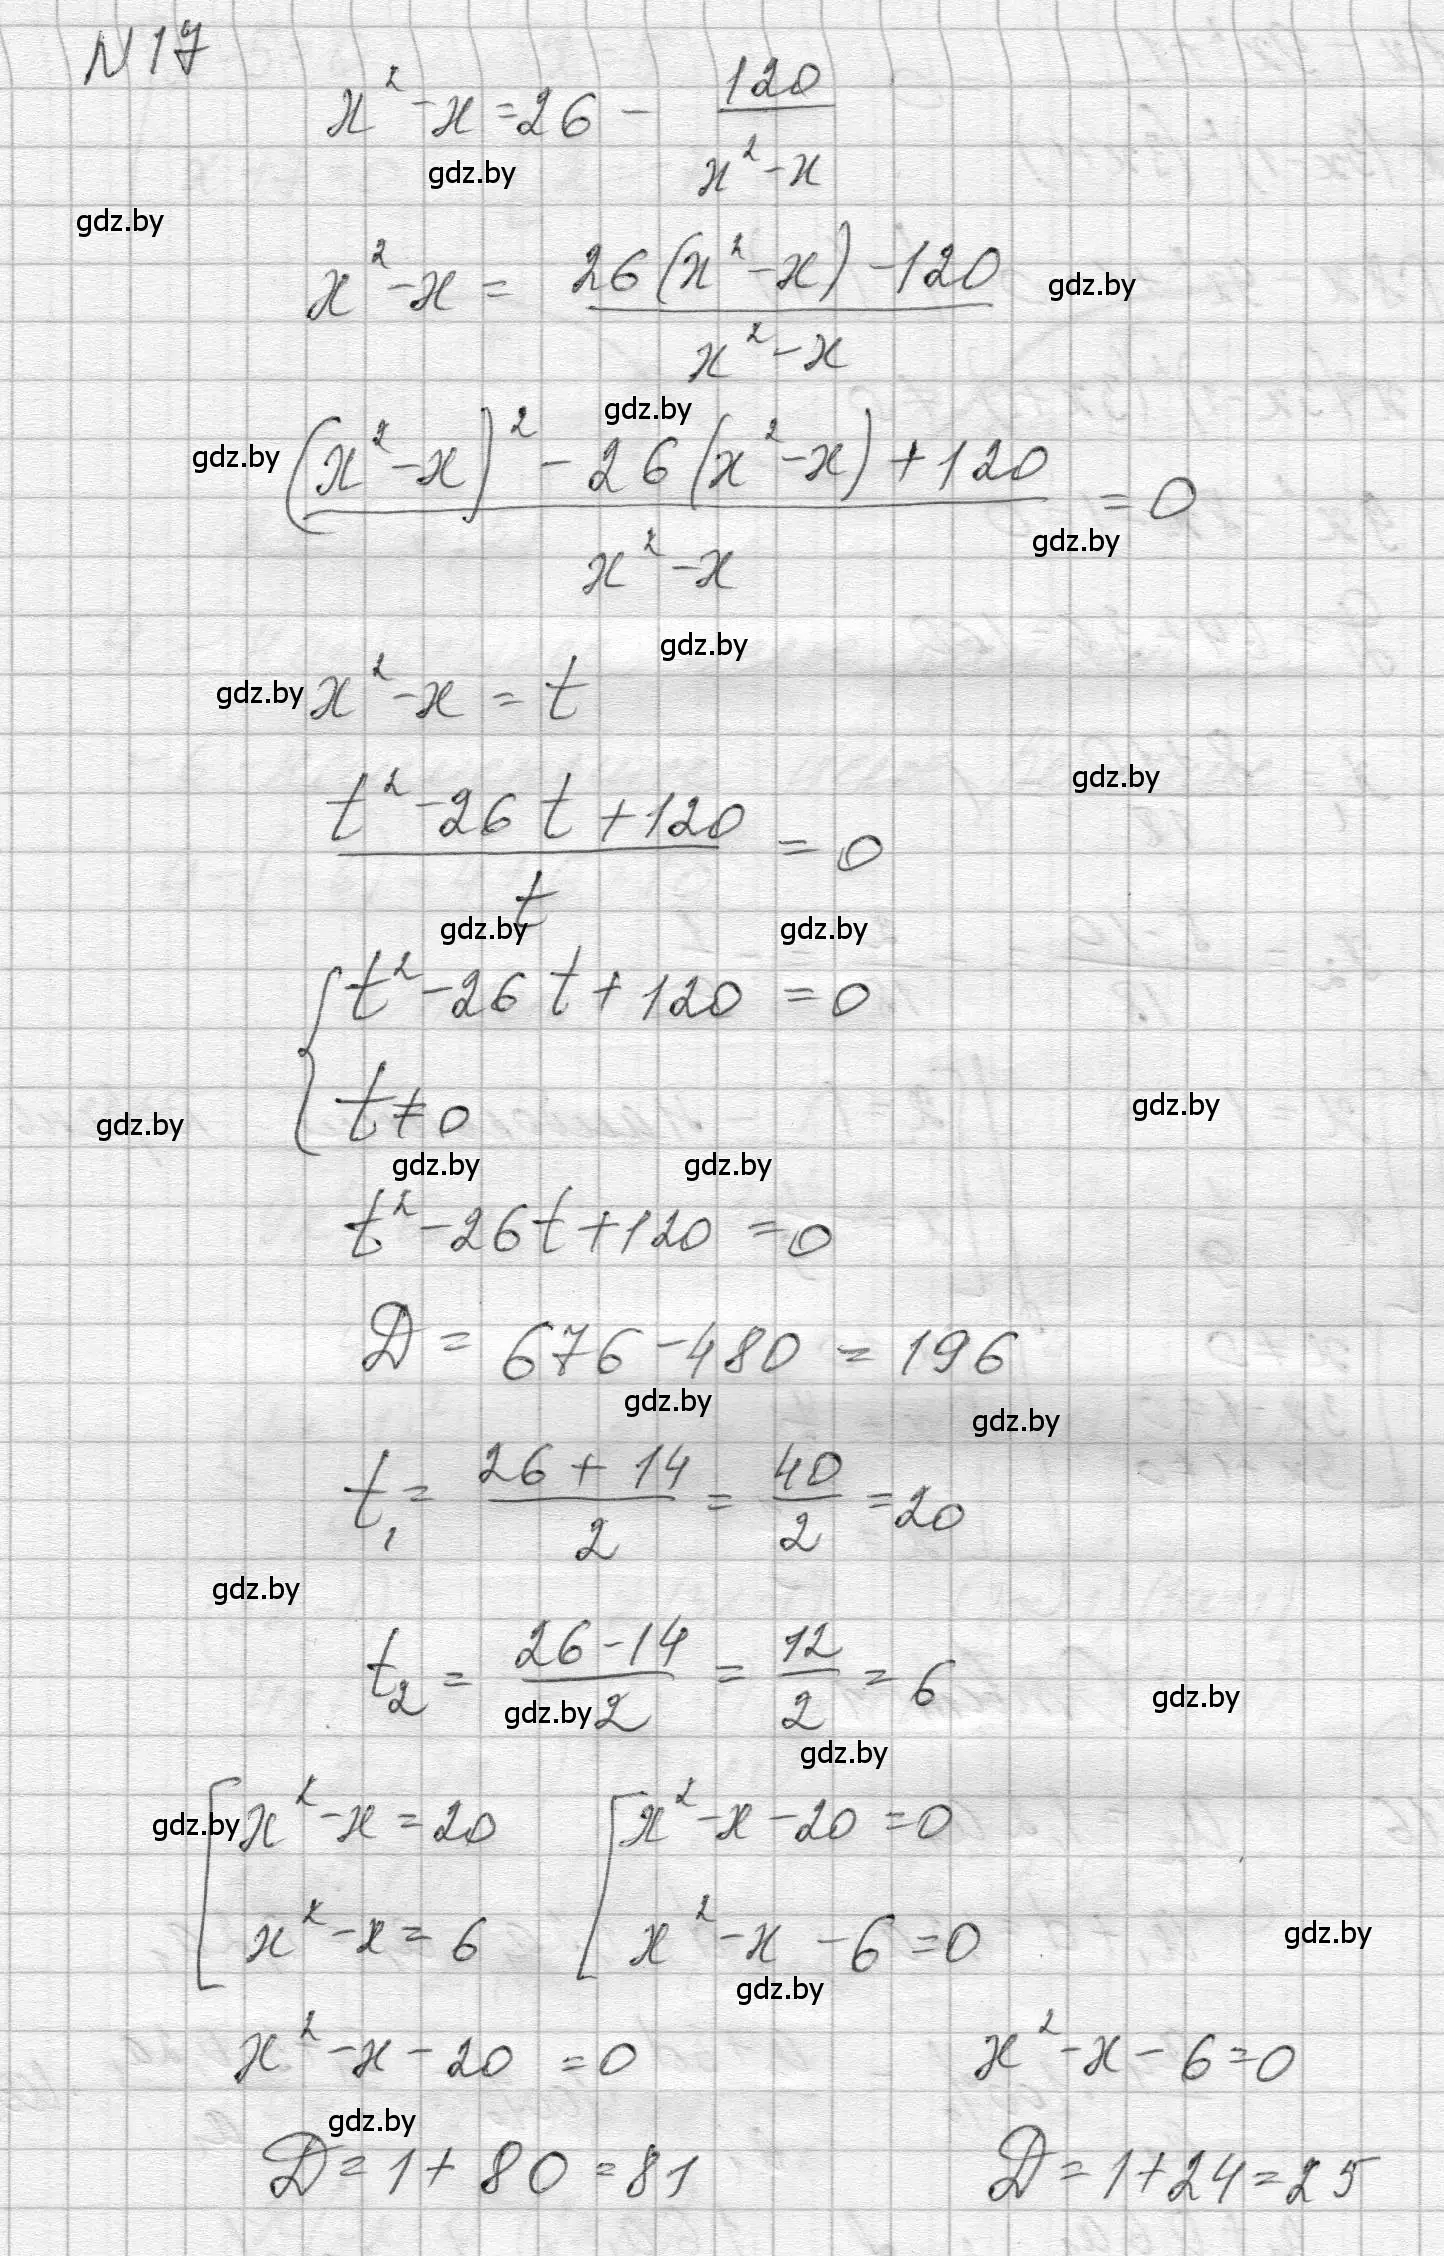 N 17
x² - x = 26 - 120/(x² - x)
gdz.by
gdz.by
x² - x = (26(x² - x) - 120)/(x² - x)
gdz.by
gdz.by
gdz.by
((x² - x)² - 26(x² - x) + 120)/(x² - x) = 0
gdz.by
gdz.by
gdz.by
x² - x = t
gdz.by
(t² - 26t + 120)/t = 0
gdz.by gdz.by
{ t² - 26t + 120 = 0
t ≠ 0
gdz.by
gdz.by
gdz.by gdz.by
t² - 26t + 120 = 0
D = 676 - 480 = 196
gdz.by
gdz.by
t₁ = (26 + 14)/2 = 40/2 = 20
gdz.by
t₂ = (26 - 14)/2 = 12/2 = 6
gdz.by
gdz.by
gdz.by
gdz.by
[ x² - x = 20 [ x² - x - 20 = 0
x² - x = 6 x² - x - 6 = 0
gdz.by
gdz.by
x² - x - 20 = 0 x² - x - 6 = 0
gdz.by
D = 1 + 80 = 81 D = 1 + 24 = 25